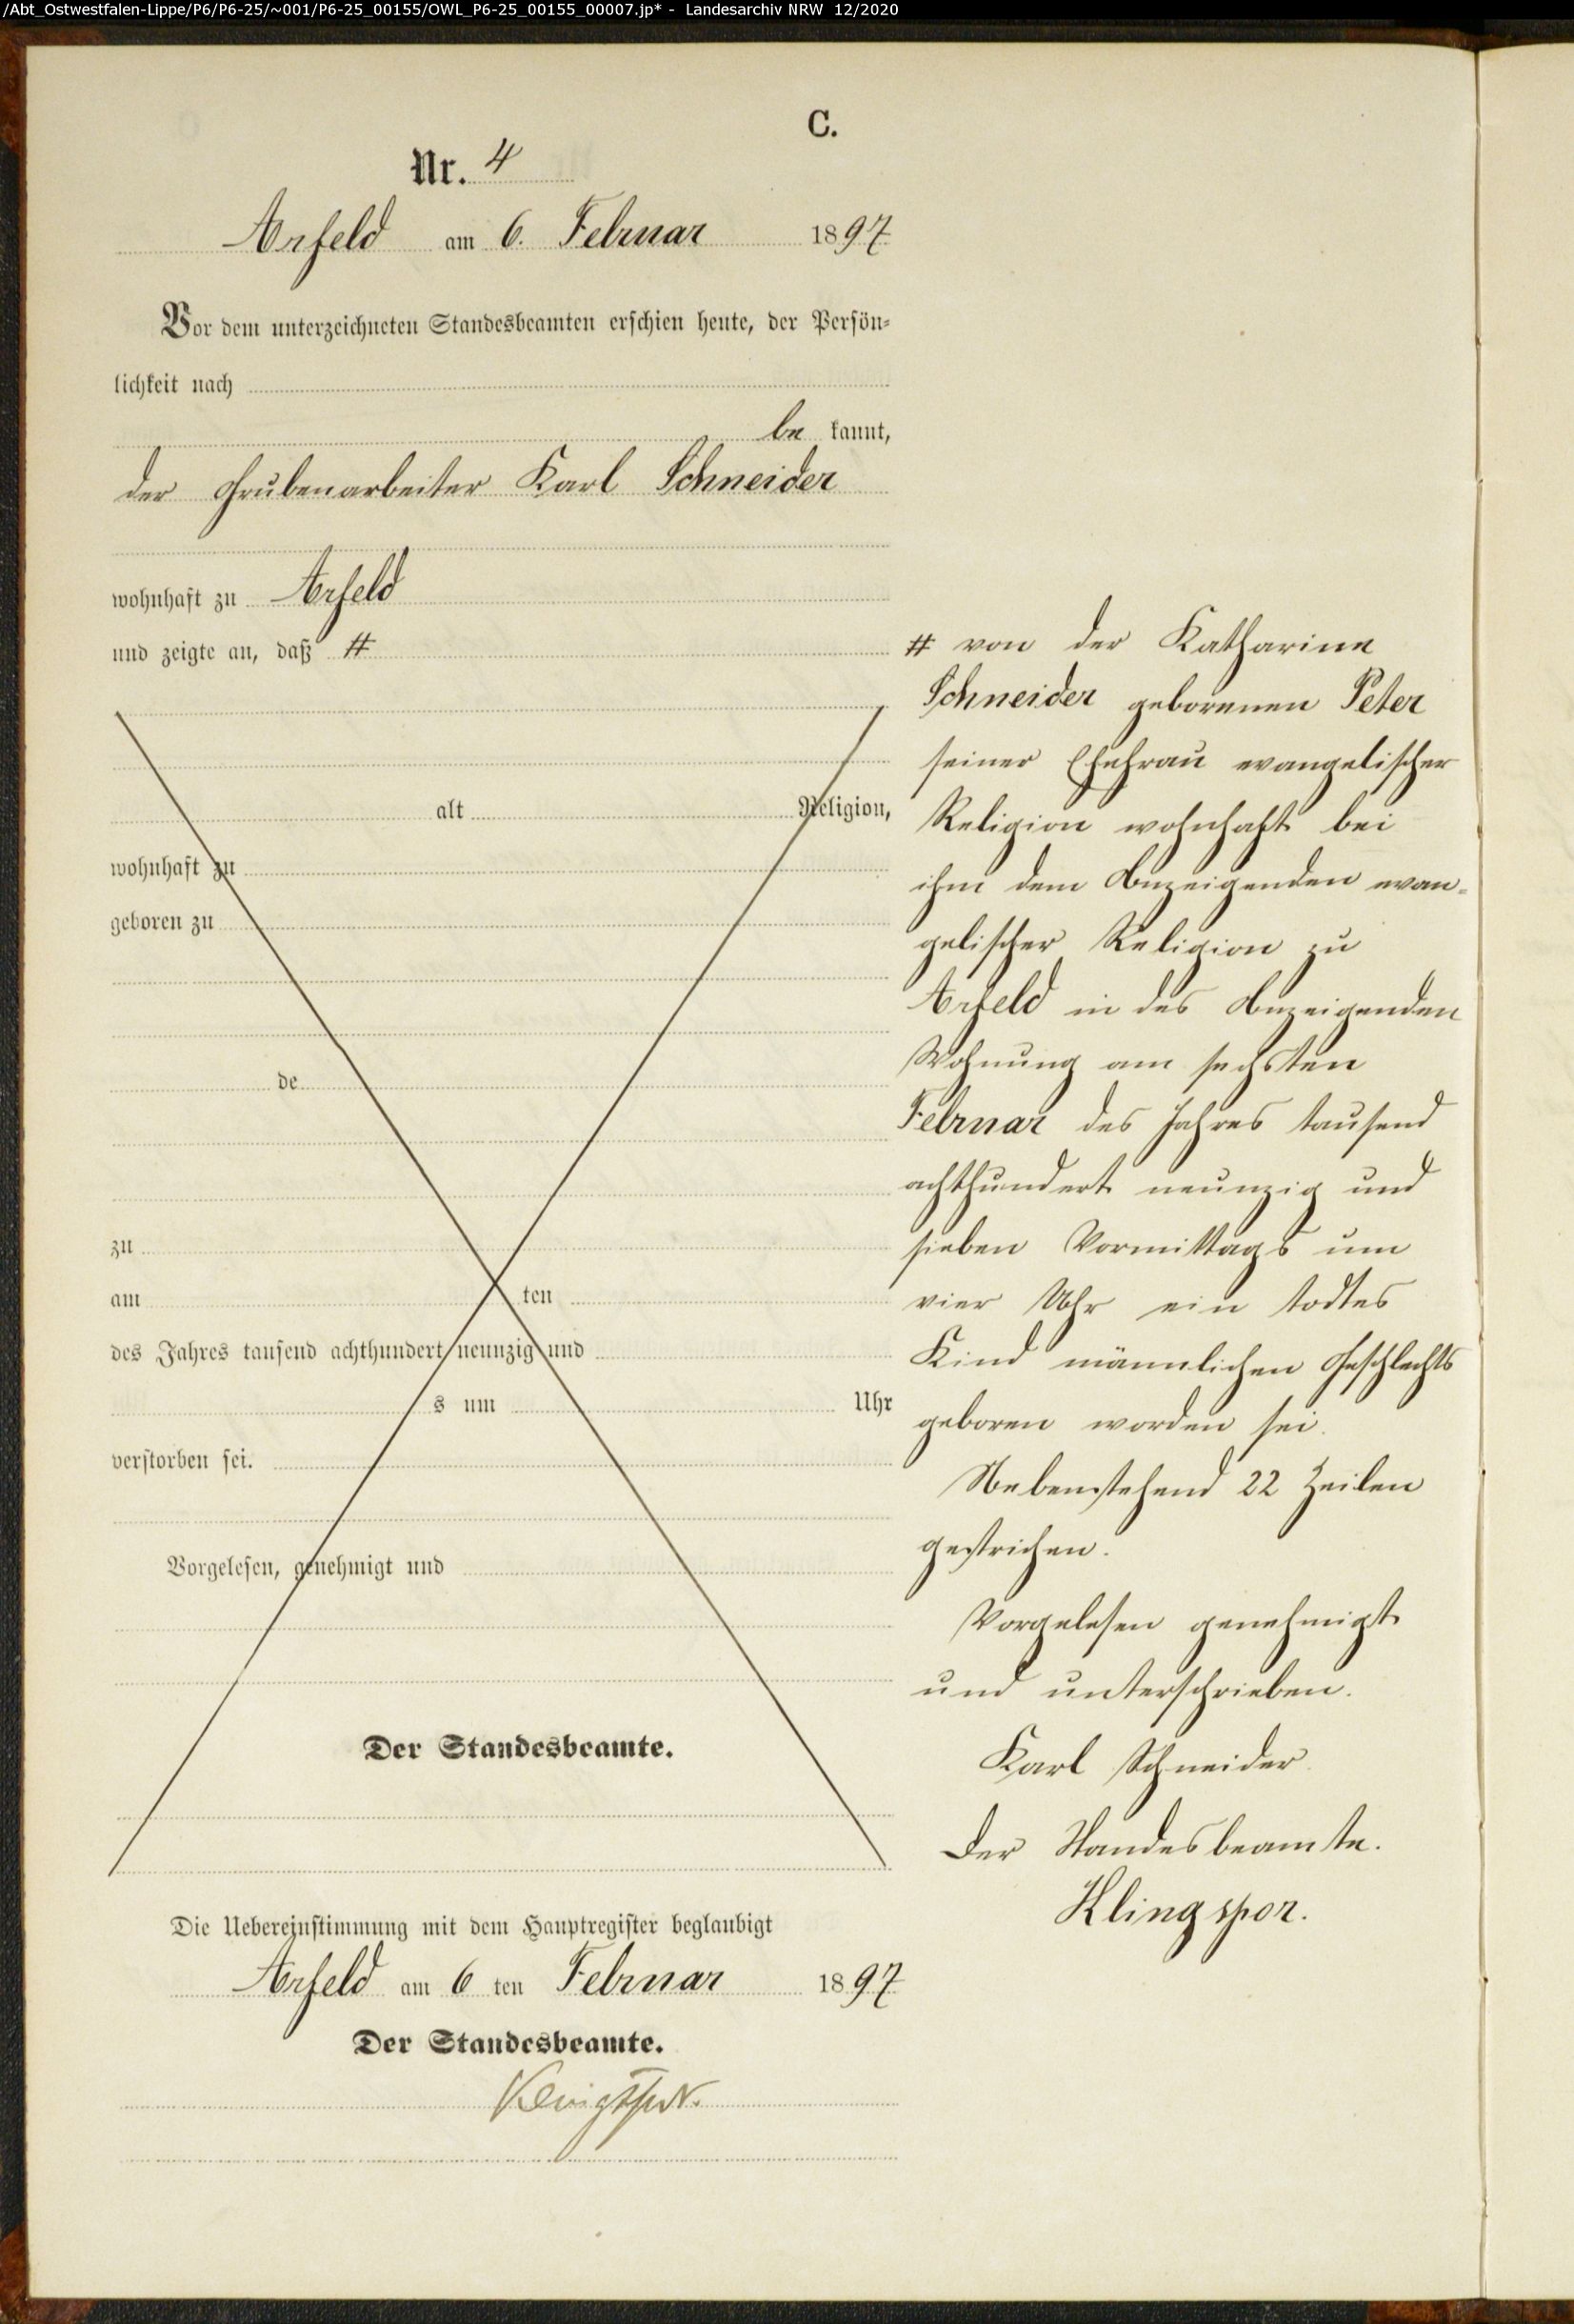 /Abt_Ostwestfalen-Lippe/P6/P6-25/~001/P6-25_00155/OWL_P6-25_00155_00007.jp* - Landesarchiv NRW 12/2020
C.
Nr. 4
Arfeld am 6. Februar 1897
Vor dem unterzeichneten Standesbeamten erschien heute, der Persön-
lichkeit nach
be kannt,
der Grubenarbeiter Karl Schneider
wohnhaft zu Arfeld
und zeigte an, daß #
alt Religion,
wohnhaft zu
geboren zu
de
zu
am ten
des Jahres tausend achthundert neunzig und
s um Uhr
verstorben sei.
Vorgelesen, genehmigt und
Der Standesbeamte.
Die Uebereinstimmung mit dem Hauptregister beglaubigt
Arfeld am 6 ten Februar 1897
Der Standesbeamte.
Klingspor.
# von der Katharine
Schneider geborenen Peter
seiner Ehefrau evangelischer
Religion wohnhaft bei
ihm dem Anzeigenden evan-
gelischer Religion zu
Arfeld in des Anzeigenden
Wohnung am sechsten
Februar des Jahres tausend
achthundert neunzig und
sieben Vormittags um
vier Uhr ein todtes
Kind männlichen Geschlechts
geboren worden sei.
Nebenstehend 22 Zeilen
gestrichen.
Vorgelesen genehmigt
und unterschrieben.
Karl Schneider.
Der Standesbeamte.
Klingspor.